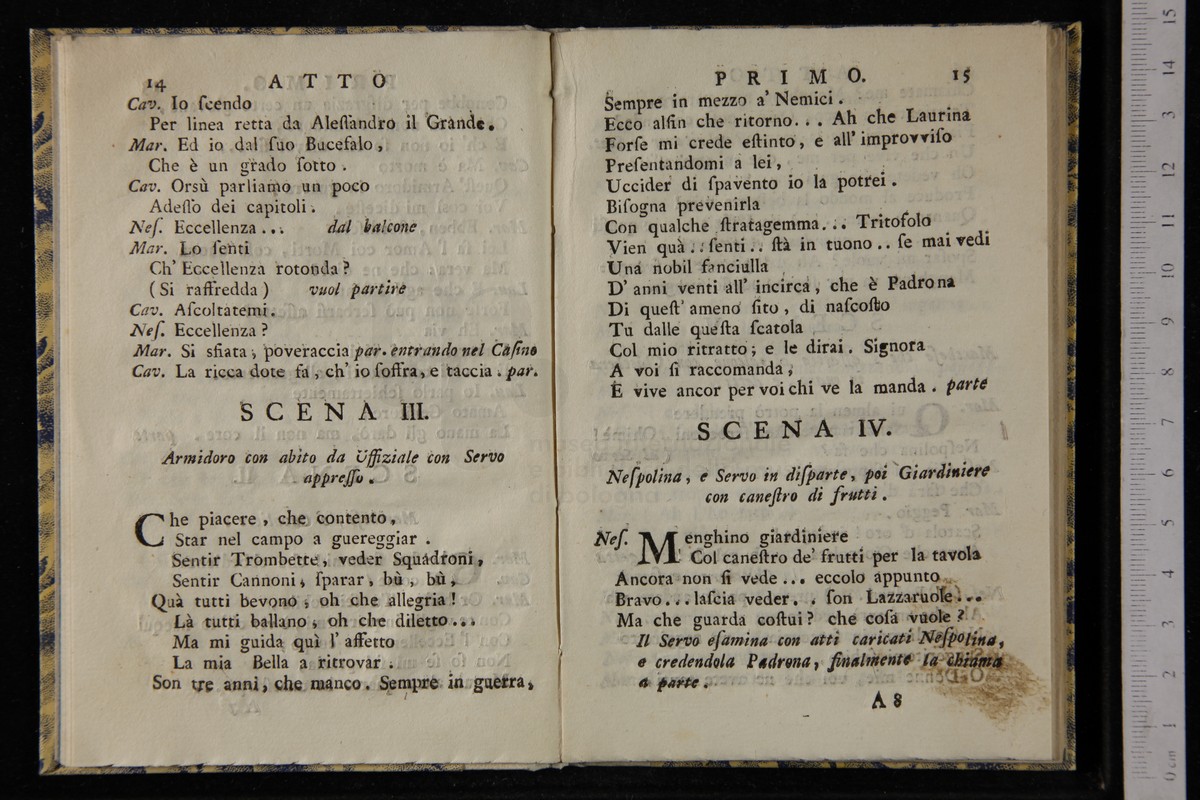 14 ATTO
Cav. Io ſcendo
Per linea retta da Aleſſandro il Grande.
Mar. Ed io dal ſuo Bucefalo,
Che è un grado ſotto.
Cav. Orsù parliamo un poco
Adeſſo dei capitoli.
Neſ. Eccellenza... dal balcone
Mar. Lo ſenti
Ch' Eccellenza rotonda?
(Si raffredda) vuol partire
Cav. Aſcoltatemi.
Neſ. Eccellenza?
Mar. Si sfiata, poveraccia par. entrando nel Caſino
Cav. La ricca dote fa, ch' io ſoffra, e taccia. par.
SCENA III.
Armidoro con abito da Uffiziale con Servo
appreſſo.
Che piacere, che contento,
Star nel campo a guereggiar.
Sentir Trombette, veder Squadroni,
Sentir Cannoni, ſparar, bù, bù,
Quà tutti bevono, oh che allegria!
Là tutti ballano, oh che diletto...
Ma mi guida quì l' affetto
La mia Bella a ritrovar.
Son tre anni, che manco. Sempre in guerra,
PRIMO. 15
Sempre in mezzo a' Nemici.
Ecco alfin che ritorno... Ah che Laurina
Forſe mi crede eſtinto, e all' improvviſo
Preſentandomi a lei,
Uccider di ſpavento io la potrei.
Biſogna prevenirla
Con qualche ſtratagemma... Tritofolo
Vien quà.. ſenti.. ſtà in tuono.. ſe mai vedi
Una nobil fanciulla
D' anni venti all' incirca, che è Padrona
Di queſt' ameno ſito, di naſcoſto
Tu dalle queſta ſcatola
Col mio ritratto; e le dirai. Signora
A voi ſi raccomanda,
E vive ancor per voi chi ve la manda. parte
SCENA IV.
Neſpolina, e Servo in diſparte, poi Giardiniere
con caneſtro di frutti.
Neſ. Menghino giardiniere
Col caneſtro de' frutti per la tavola
Ancora non ſi vede... eccolo appunto
Bravo... laſcia veder.. ſon Lazzaruole...
Ma che guarda coſtui? che coſa vuole?
Il Servo eſamina con atti caricati Neſpolina,
e credendola Padrona, finalmente la chiama
a parte.
A 8